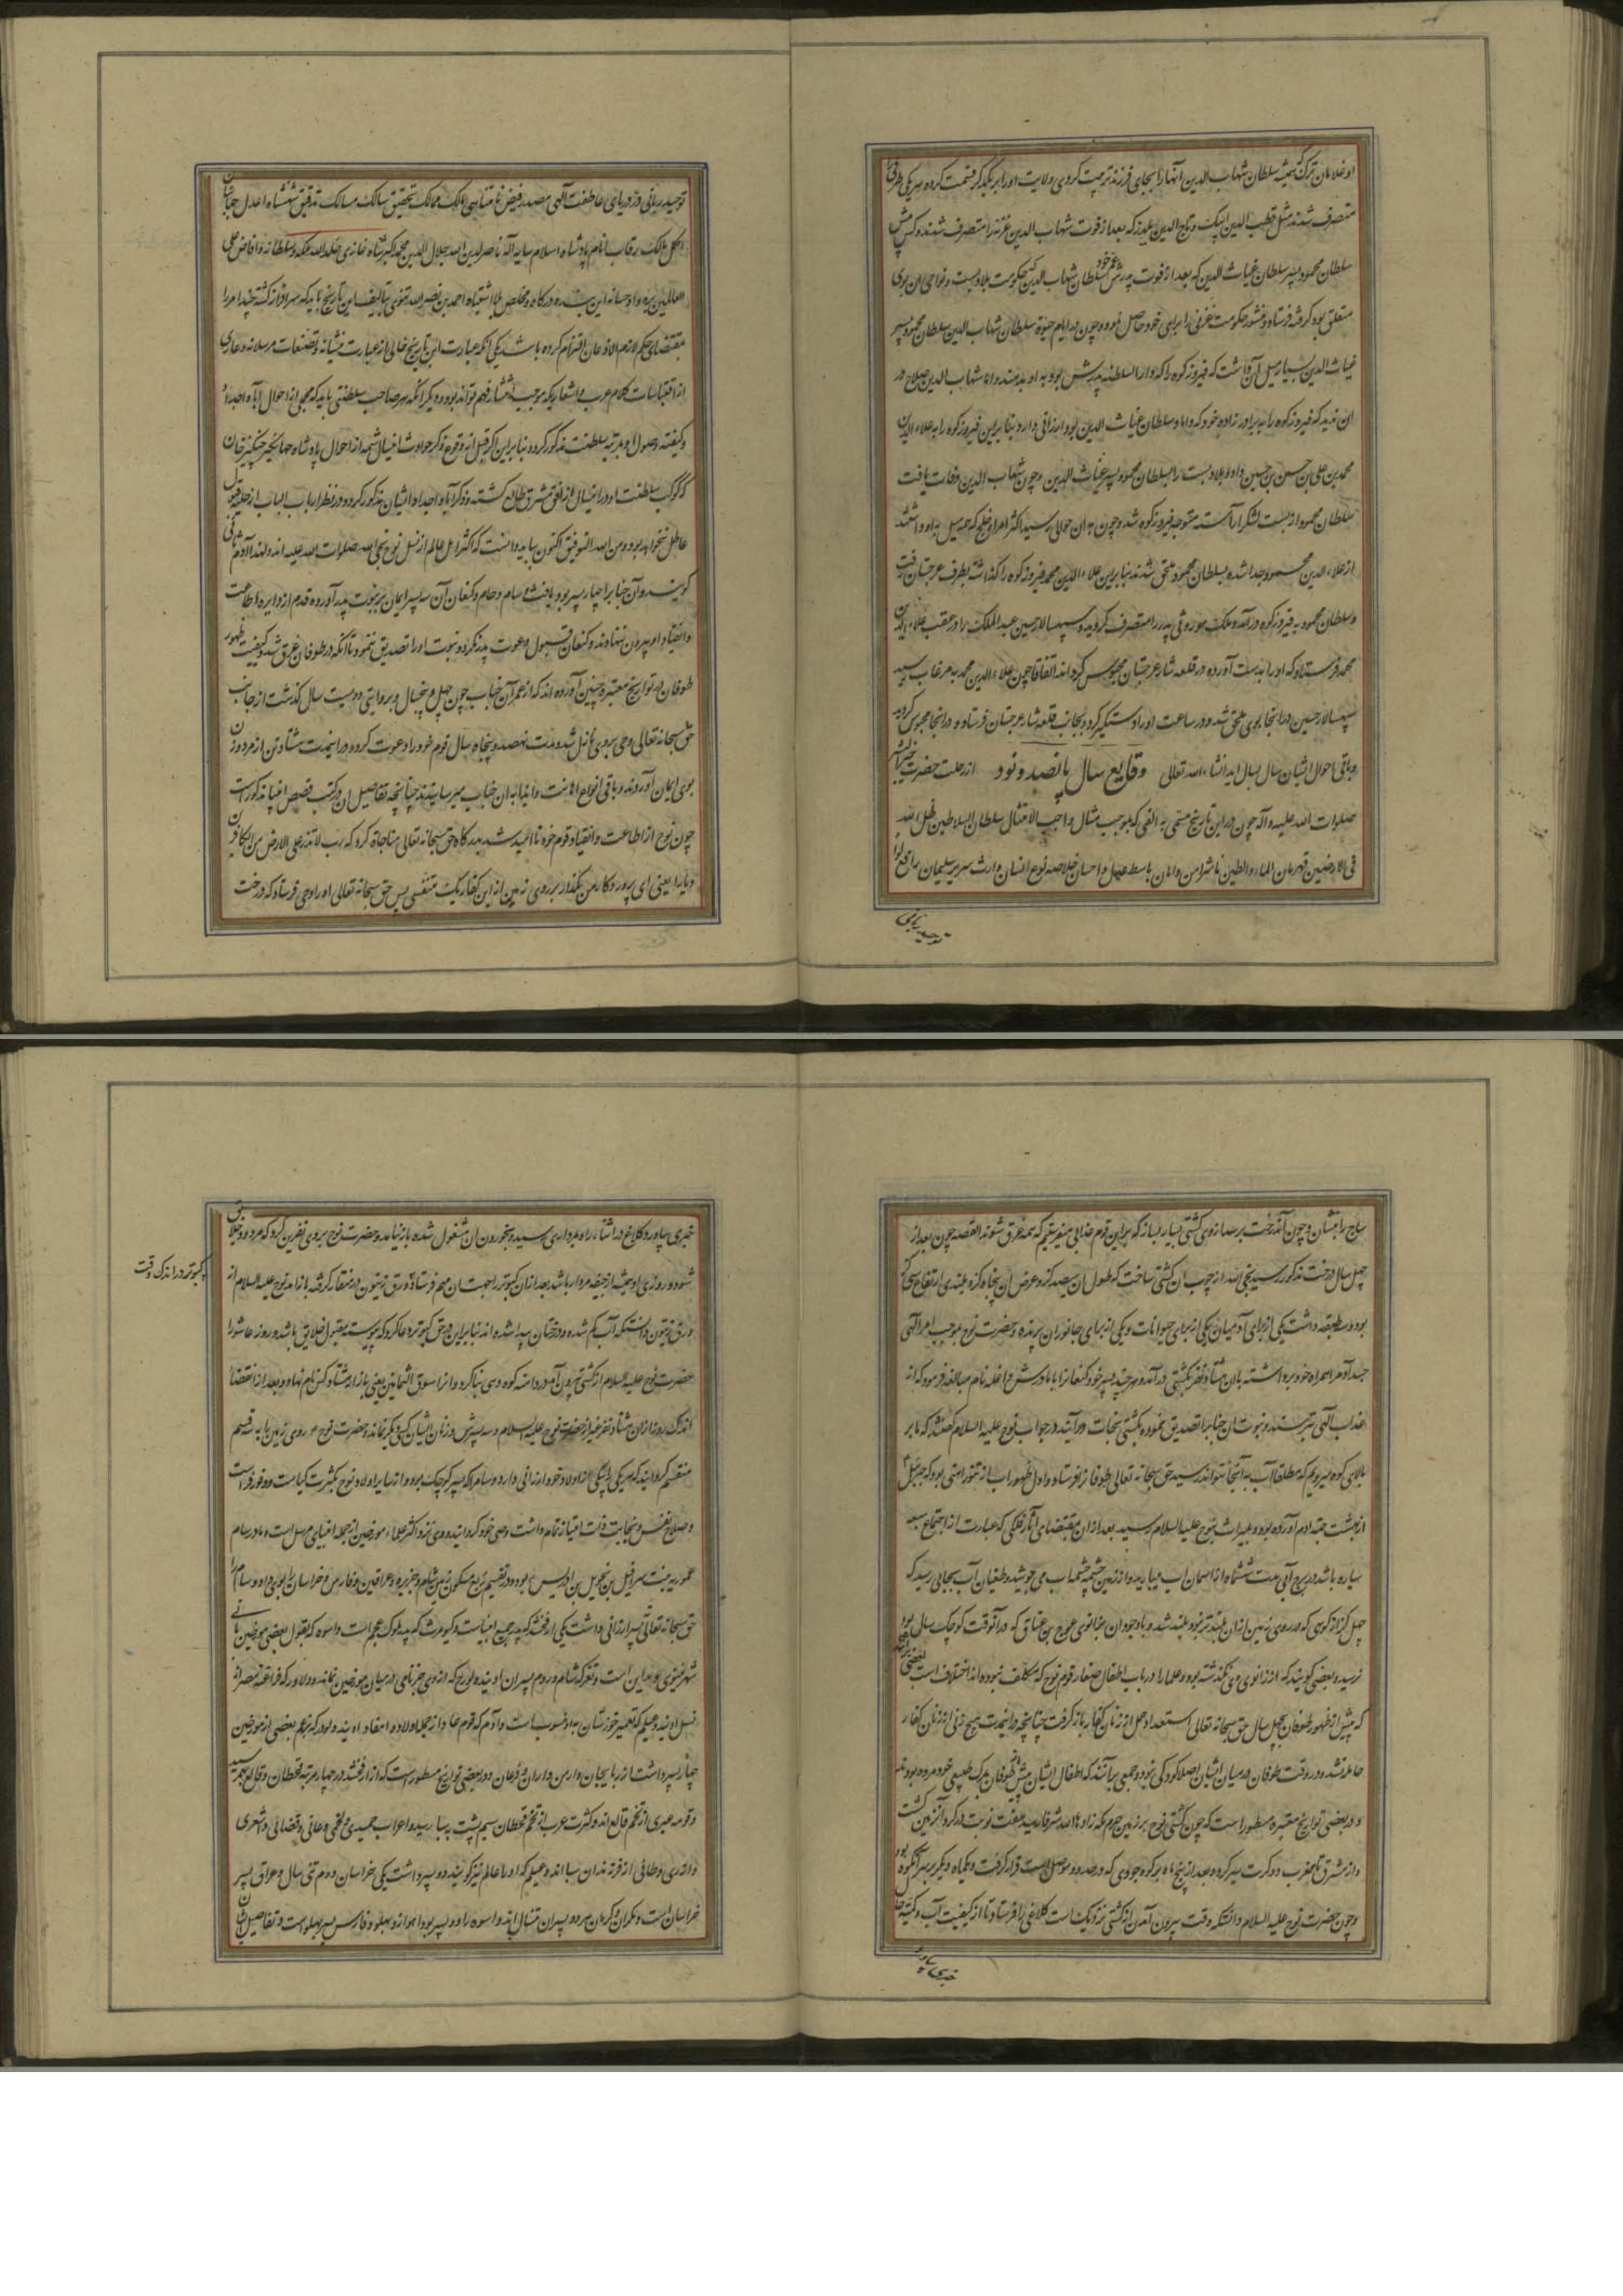 او غلامان ترک همیشه سلطان شهاب الدین آنها را بجای فرزند تربیت کردی ولایت او را بر یکدیگر قسمت کرده هر یکی طرفی
متصرف شدند مثل قطب الدین ایبک و تاج الدین یلدز که بعد از فوت شهاب الدین غزنه را متصرف شدند و کس پیش
سلطان محمود پسر سلطان غیاث الدین که بعد از فوت پدرش عم خود سلطان شهاب الدین حکومت بلاد بست و نواحی آن بوی
متعلق بود کرده فرستاد و منشور حکومت غزنی را برای خود حاصل نموده و چون در ایام حیوة سلطان شهاب الدین سلطان محمود پسر
غیاث الدین بسیار میل آن داشت که فیروزکوه را که دار السلطنه پدرش بود به او بدهند و اما شهاب الدین صلاح در
آن ندید که فیروزکوه را به برادر زاده خود که داماد سلطان غیاث الدین بود ارزانی دارد بنا براین فیروزکوه را به علاء الدین
محمد بن علی بن حسن بن حسین داد و بلاد بست را بسلطان محمود پسر غیاث الدین و چون شهاب الدین وفات یافت
سلطان محمود از بست لشکر آراسته متوجه فیروزکوه شد و چون به آن حوالی رسید اکثر امراء خلج که میل به او داشتند
از علاء الدین محمود جدا شده بسلطان محمود ملحق شدند بنا براین علاء الدین محمد فیروزکوه را گذاشته بطرف غرجستان رفت
و سلطان محمود به فیروزکوه درآمد و ملک موروثی پدر را متصرف گردیده سپهسالار حسین عبد الملک را در عقب علاء الدین
محمد فرستاد که او را بدست آورده در قلعه شار غرجستان محبوس گرداند اتفاقا چون علاء الدین محمد به مرغاب رسید
سپهسالار حسین در آنجا بوی ملحق شد و در ساعت او را دستگیر کرد و بجانب قلعه شار غرجستان فرستاد و در آنجا محبوس گردید
و باقی احوال ایشان سال بسال آید انشاء الله تعالی وقایع سال پانصد و نود از رحلت حضرت خیر البشر
صلوات الله علیه و آله چون در این تاریخ مسمی به الفی که بموجب مثال واجب الامتثال سلطان السلاطین ظل الله
فی الارضین قهرمان الماء و الطین ناشر امن و امان باسط عدل و احسان خلاصه نوع انسان وارث سریر سلیمان رافع لوا
توحید ربانی
توحید ربانی در دریای عاطفت الهی مصدر فیض نامتناهی مالک ممالک تحقیق سالک مسالک تدقیق شهنشاه اعدل جهانبان
اکمل مالک رقاب انام پادشاه اسلام سایه اله ناصر لدین الله جلال الدین محمد اکبر شاه غازی خلد الله ملکه و سلطانه و افاض علی
العالمین بره و احسانه این بنده درگاه و مخلص بلا اشتباه احمد بن نصر الله تتوی بتالیف این تاریخ با یکه سرافراز گشته چند امر را
بمقتضای حکم لازم الاذعان التزام کرده باشد یکی آنکه عبارت این تاریخ خالی از عبارت منشیانه و تصنعات مرسلانه و عاری
از اقتباسات کلام عرب و اشعاریکه موجب انتشار فهم تواند بود و دیگر آنکه هر صاحب سلطنتی باید که مجملی از احوال آباء و اجداد
و کیفیت وصول او بمرتبه سلطنت مذکور گردد بنا براین اگر قبل از وقوع ذکر حوادث این سال شمه از احوال پادشاه جهانگیر چنگیز خان
که کوکب سلطنت او در این سال از افق مشرق طالع گشته و ذکر آبا و اجداد ایشان مذکور گردد در نظر ارباب الباب از حلیه قبول
عاطل نخواهد بود و من الله التوفیق اکنون بباید دانست که اکثر اهل عالم از نسل نوح نبی الله صلوات الله علیه اند و لهذا آدم ثانی
گویند و آن جناب را چهار پسر بود یافث و سام و حام و کنعان آن سه پسر ایمان بر نبوت پدر آورده قدم از دایره اطاعت
و انقیاد او بیرون ننهادند و کنعان قبول دعوت پدر نکرد و نبوت او را تصدیق ننمود تا آنکه در طوفان غرق شد و کیفیت ظهور
طوفان در تواریخ معتبره چنین آورده اند که از عمر آن جناب چون چهل و پنجسال و بروایتی دویست سال گذشت از جانب
حق سبحانه تعالی وحی بروی نازل شد و مدت نهصد و پنجاه سال قوم خود را دعوت کرد و در این مدت هشتاد تن از مرد و زن
بوی ایمان آوردند و باقی انواع اهانت و ایذا به آن جناب میرسانیدند چنانچه تفاصیل آن در کتب قصص انبیا مذکور است
چون نوح از اطاعت و انقیاد قوم خود ناامید شد بدرگاه حق سبحانه تعالی مناجاة کرد که رب لا تذر علی الارض من الکافرین
دیارا یعنی ای پروردگار من مگذار بر روی زمین از این کفار یک متنفسی پس حق سبحانه تعالی او را وحی فرستاد که درخت
ساج را بنشان و چون آن درخت بر صدازوی کشتی بسیار بساز که بر این قوم عذابی میفرستیم که همه غرق شوند القصه چون بعد از
چهل سال درخت مذکور رسید نجی الله از چوب آن کشتی ساخت که طول آن سیصد گز و عرض آن پنجاه گز و بلندی ارتفاع سی گز
بود و سه طبقه داشت یکی از برای آدمیان یکی از برای حیوانات و یکی از برای جانوران پرنده و حضرت نوح بموجب امر الهی
جسد آدم را همراه خود برداشته با آن هشتاد نفر بکشتی درآمد و هر چند پسر خود کنعان را با مادرش واعله نام مبالغه فرمود که از
عذاب الهی بترسند و نبوت آن جناب را تصدیق نموده بکشتی نجات درآیند در جواب نوح علیه السلام گفتند که ما بر
بالای کوه میرویم که مطلقا آب به آنجا نتواند رسید حق سبحانه تعالی طوفان را فرستاد و اول ظهور آب از تنور آهنی بود که جبرئیل
از بهشت جهته آدم آورده بود و بمیراث بنوح علیه السلام رسید بعد از آن بمقتضای آثار فلکی که عبارت از اجتماع سبعه
سیاره باشد در برج آبی مدت ششماه از آسمان آب میبارید و از زمین چشمه چشمه آب می جوشید و طغیان آب بجایی رسید که
چهل گز از کوهی که در روی زمین از آن بلندتر نبود بلند شد و با وجود آن تا بزانوی عوج بن عناق که در آنوقت کوچک سال بود
نرسید و بعضی گویند که از زانوی وی نگذشته بود و علما را در باب اطفال صغار قوم نوح که مکلف نبوده اند اختلاف است بعضی برآنند
که پیش از ظهور طوفان بچهل سال حق سبحانه تعالی استعداد حمل از زنان کفار باز گرفت چنانچه در این مدت هیچ زنی از زنان کفار
حامله نشد و در وقت طوفان در میان ایشان اصلا کودکی نبود و جمعی برآنند که اطفال ایشان پیش از طوفان بمرگ طبیعی خود مرده بودند
و در بعضی تواریخ معتبره مسطور است که چون کشتی نوح بر زمین حرم مکه زادها الله شرفا رسید هفت نوبت در گرد آن زمین گشت
و از مشرق تا بمغرب دو کرت سیر کرده و بعد از پنج ماه بر کوه جودی که در حدود موصل است قرار گرفت و یکماه دیگر بر سر آنکوه بود
و چون حضرت نوح علیه السلام دانست که وقت بیرون آمدن از کشتی نزدیک است کلاغی را فرستاد تا از کیفیت آب و کمیته حال
خبری بیاورد
خبری بیاورد و کلاغ در اثناء راه بمرداری رسید و بخوردن آن مشغول شده باز نیامد و حضرت نوح بروی نفرین کرد که مردود خلایق
شود و روزی او همیشه از جیفه مردار باشد بعد از آن کبوتر را بجهت آن مهم فرستاد و ورق زیتون در منقار گرفته باز آمد نوح علیه السلام از
کبوتر در اندک وقت
ورق زیتون دانست که آب کم شده و درختان پیدا شده اند بنا براین در حق کبوتر دعا کرد که پیوسته مقبول خلایق باشد و روز عاشورا
حضرت نوح علیه السلام از کشتی بیرون آمد و در دامنه کوه دهی بنا کرد و آنرا سوق الثمانین یعنی بازار هشتاد کس نام نهاد و بعد از انقضای
اندک روز از آن هشتاد نفر غیر از حضرت نوح علیه السلام و سه پسرش و زنان ایشان کسی دیگر نماند و حضرت نوح روی زمین را به سه قسم
منقسم گردانید که هر یکی را بیکی از اولاد خود ارزانی دارد و سام را که پسر کوچک بود و از سایر اولاد نوح بکثرت کیاست و وفور فراست
و صلاح نفس و نجابت ذات امتیاز تمام داشت وصی خود گردانید و وی نزد اکثر علماء مورخین از جمله انبیای مرسل است و مادر سام
عموریه بنت سرافیل بن نخویل بن ادریس بود و در تقسیم ربع مسکون زمین شام و جزیره و عراقین و فارس و خراسان را بوی داد و سام را
حق سبحانه تعالی پسر ارزانی داشت یکی ارفخشد که پدر جمیع انبیاست و کیومرث که پدر ملوک عجم است و اسوه که بقول بعضی مورخین بانی
شهر نینوی و مداین است و یفر که شام و روم پسران اویند و لورج که از وی جز نامی در میان مورخین نمانده و ولاور که فراعنه مصر از
نسل اویند و عیلم که تعمیر خوزستان به او منسوب است و آدم که قوم عاد از جمله اولاد و احفاد اویند و لود که بزعم بعضی از مورخین
چهار پسر داشت آذربایجان و ارمن و اران و فرغان و در بعضی تواریخ مسطور است که از ارفخشد در چهار مرتبه قحطان و قالع بهم رسید
و قومه عبری از تخم قالع اند و کثرت عرب از تخم قحطان سیم پشت به سبا رسید و اعراب حمیری و لخمی و غانی و قضائی و اشعری
و ازدی و طائی از فرزندان سبا اند و عیلم که او را عالم نیز گویند دو پسر داشت یکی خراسان و دوم تنی سال و عراق پسر
خراسان است و مکران و کرمان هر دو پسران تنسال اند و اسوه را دو پسر بود اهواز و پهلو و فارس پسر پهلو است و تفاصیل ایشان